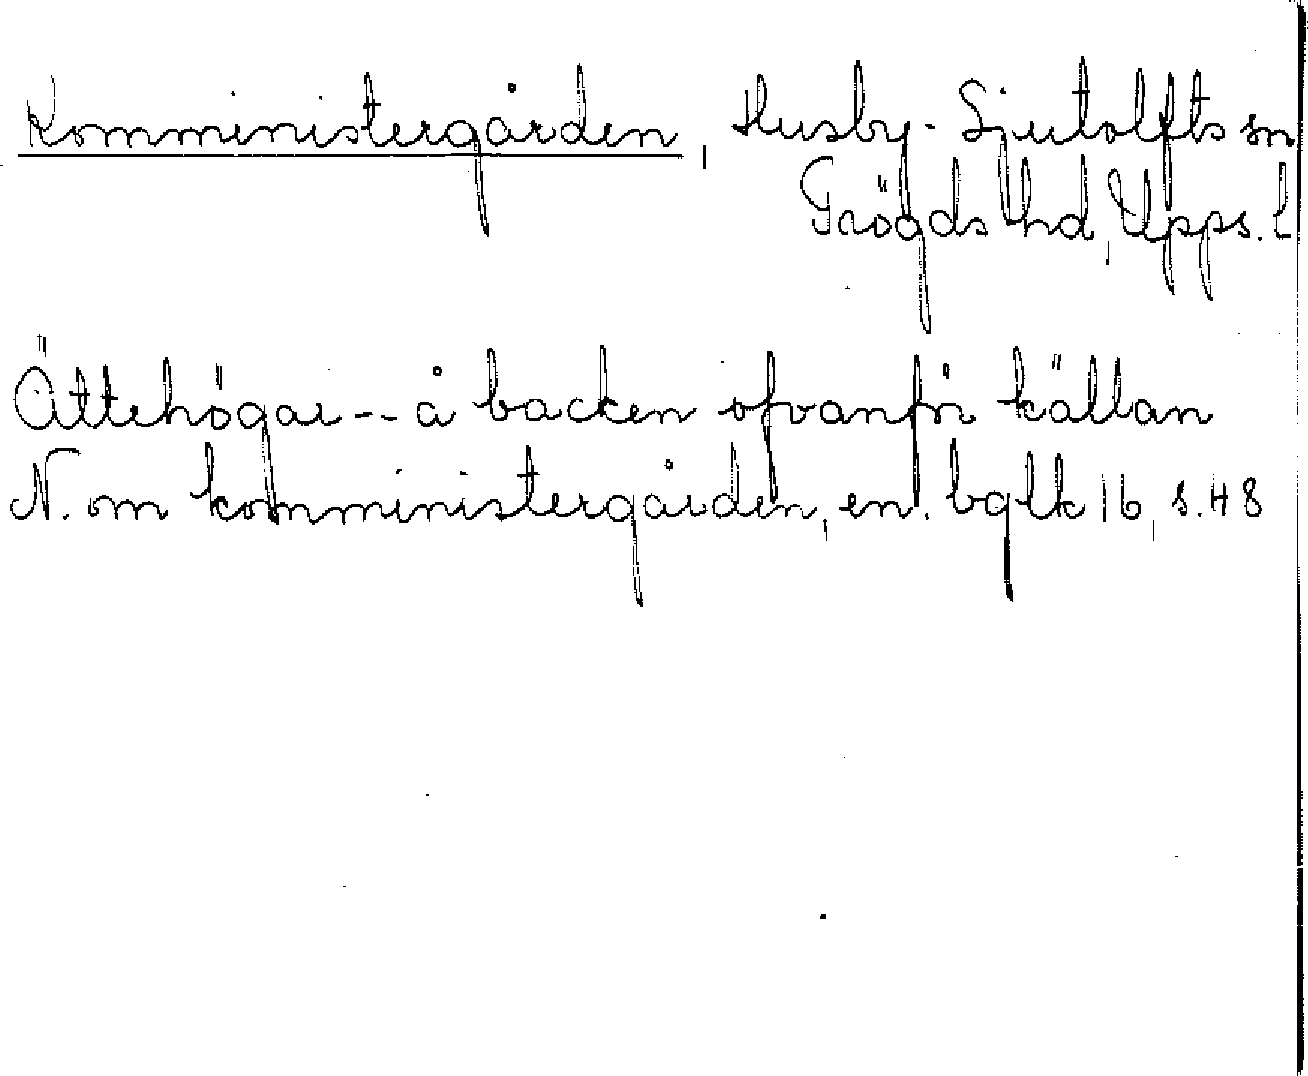 Komministergården, Husby-Sjutolfts sn
Trögds hd, Upps. l
Ättehögar -- å backen ofvanför källan
N. om komministergården, enl. bglk 16, s. 48